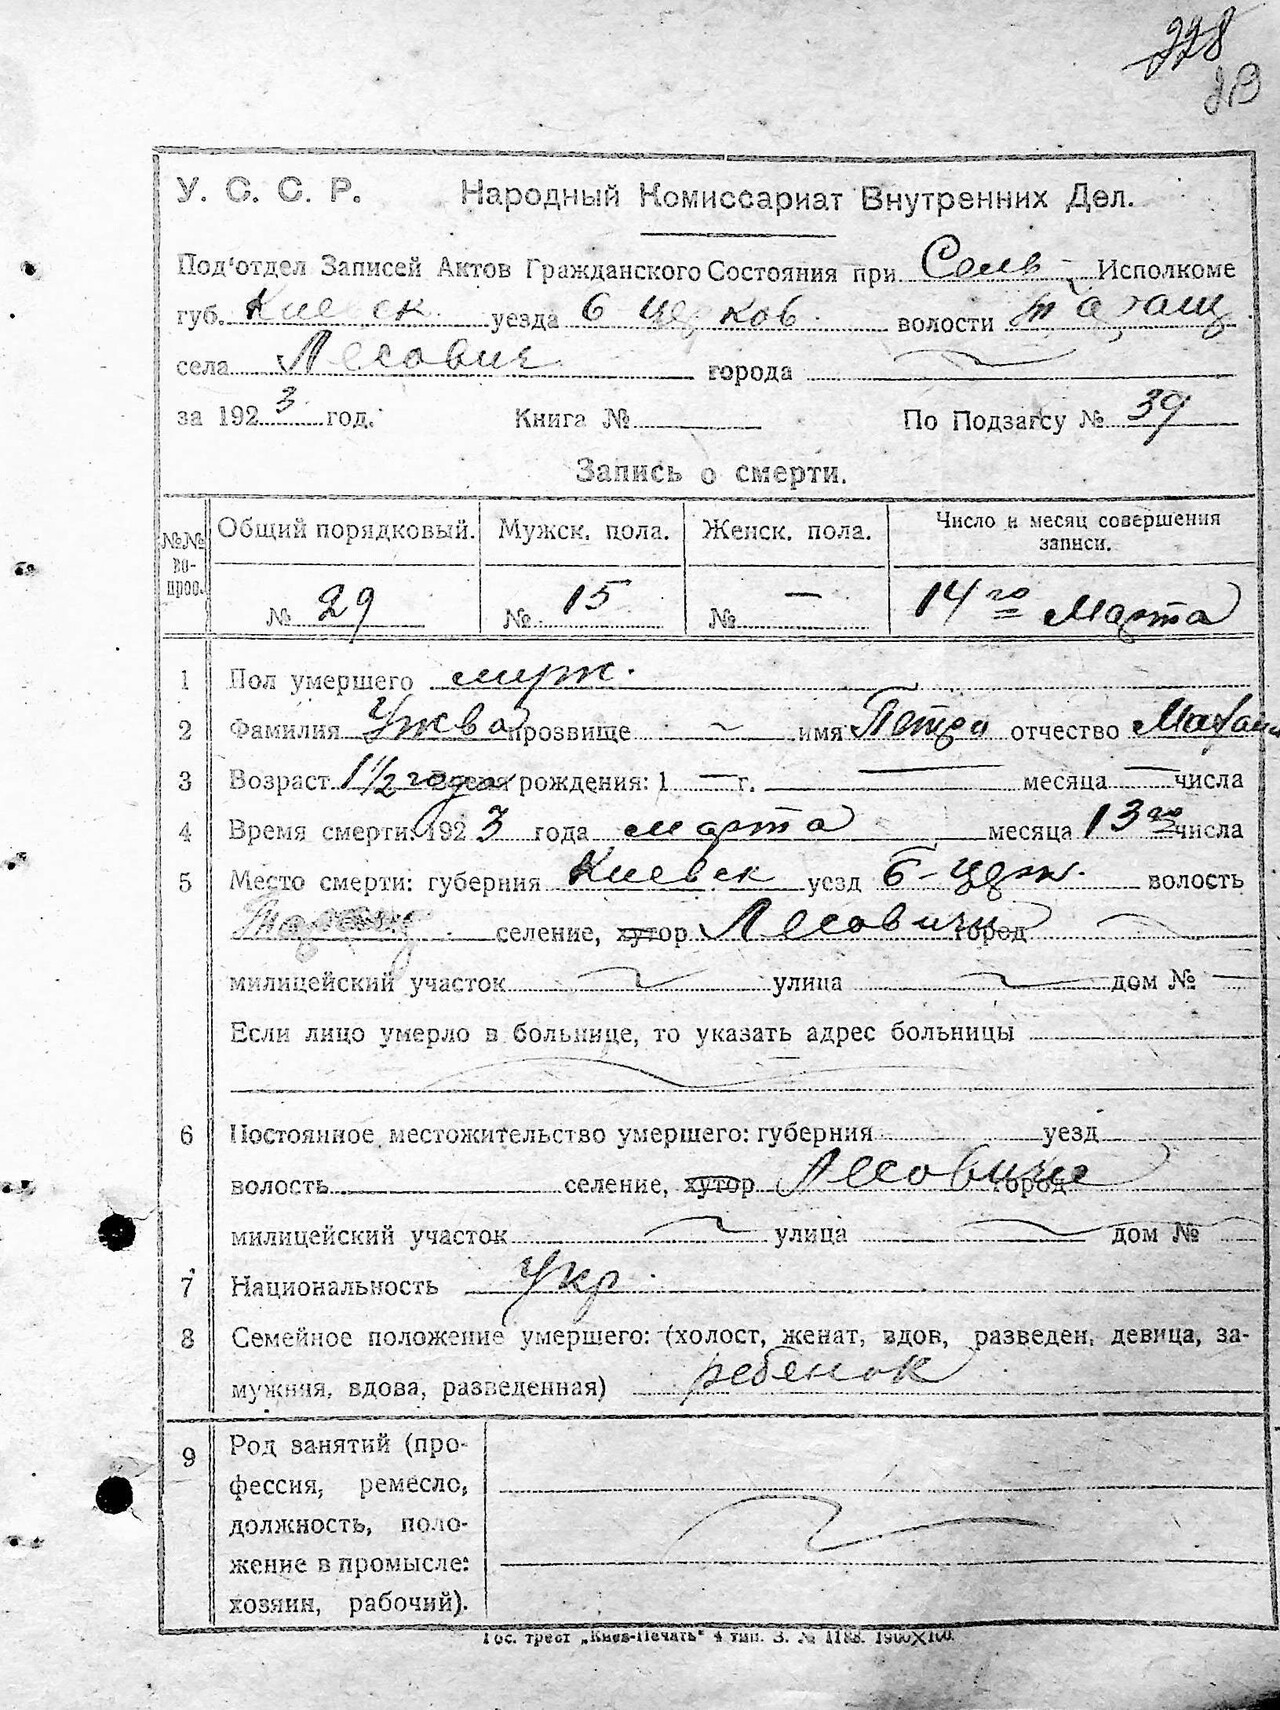 228
У. С. С. Р. Народный Комиссариат Внутренних Дел.
Под'отдел Записей Актов Гражданского Состояния при Сель- Исполкоме
губ. Киевск уезда Б-Церков. волости Таращ
села Лесович города
за 1923 год. Книга № По Подзагсу № 39
Запись о смерти.
№№ вопрос. Общий порядковый. Мужск. пола. Женск. пола. Число и месяц совершения записи.
№ 29 № 15 № — 14го Марта
1 Пол умершего муж.
2 Фамилия Ужва прозвище имя Петро отчество
3 Возраст 1 1/2 года Время рождения: 1 — г. — месяца — числа
4 Время смерти: 1923 года марта месяца 13го числа
5 Место смерти: губерния Киевск уезд Б-Церк. волость
Таращ селение, хутор Лесовичи город
милицейский участок улица дом № —
Если лицо умерло в больнице, то указать адрес больницы
6 Постоянное местожительство умершего: губерния уезд
волость селение, хутор Лесовичи город
милицейский участок улица дом №
7 Национальность Укр.
8 Семейное положение умершего: (холост, женат, вдов, разведен, девица, за-
мужняя, вдова, разведенная) ребенок
9 Род занятий (про-
фессия, ремесло,
должность, поло-
жение в промысле:
хозяин, рабочий).
Гос. трест „Киев-Печать" 4 тип. З. № 1188. 1900×100.